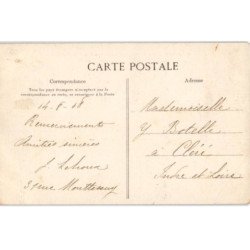 CARTE POSTALE
Correspondance
Tous les pays étrangers n'acceptent pas la
correspondance au recto, se renseigner à la Poste
Adresse
14-8-08
Remerciements
Amitiés sincères
Mademoiselle
Y Botelle
à Cléré
Indre et Loire